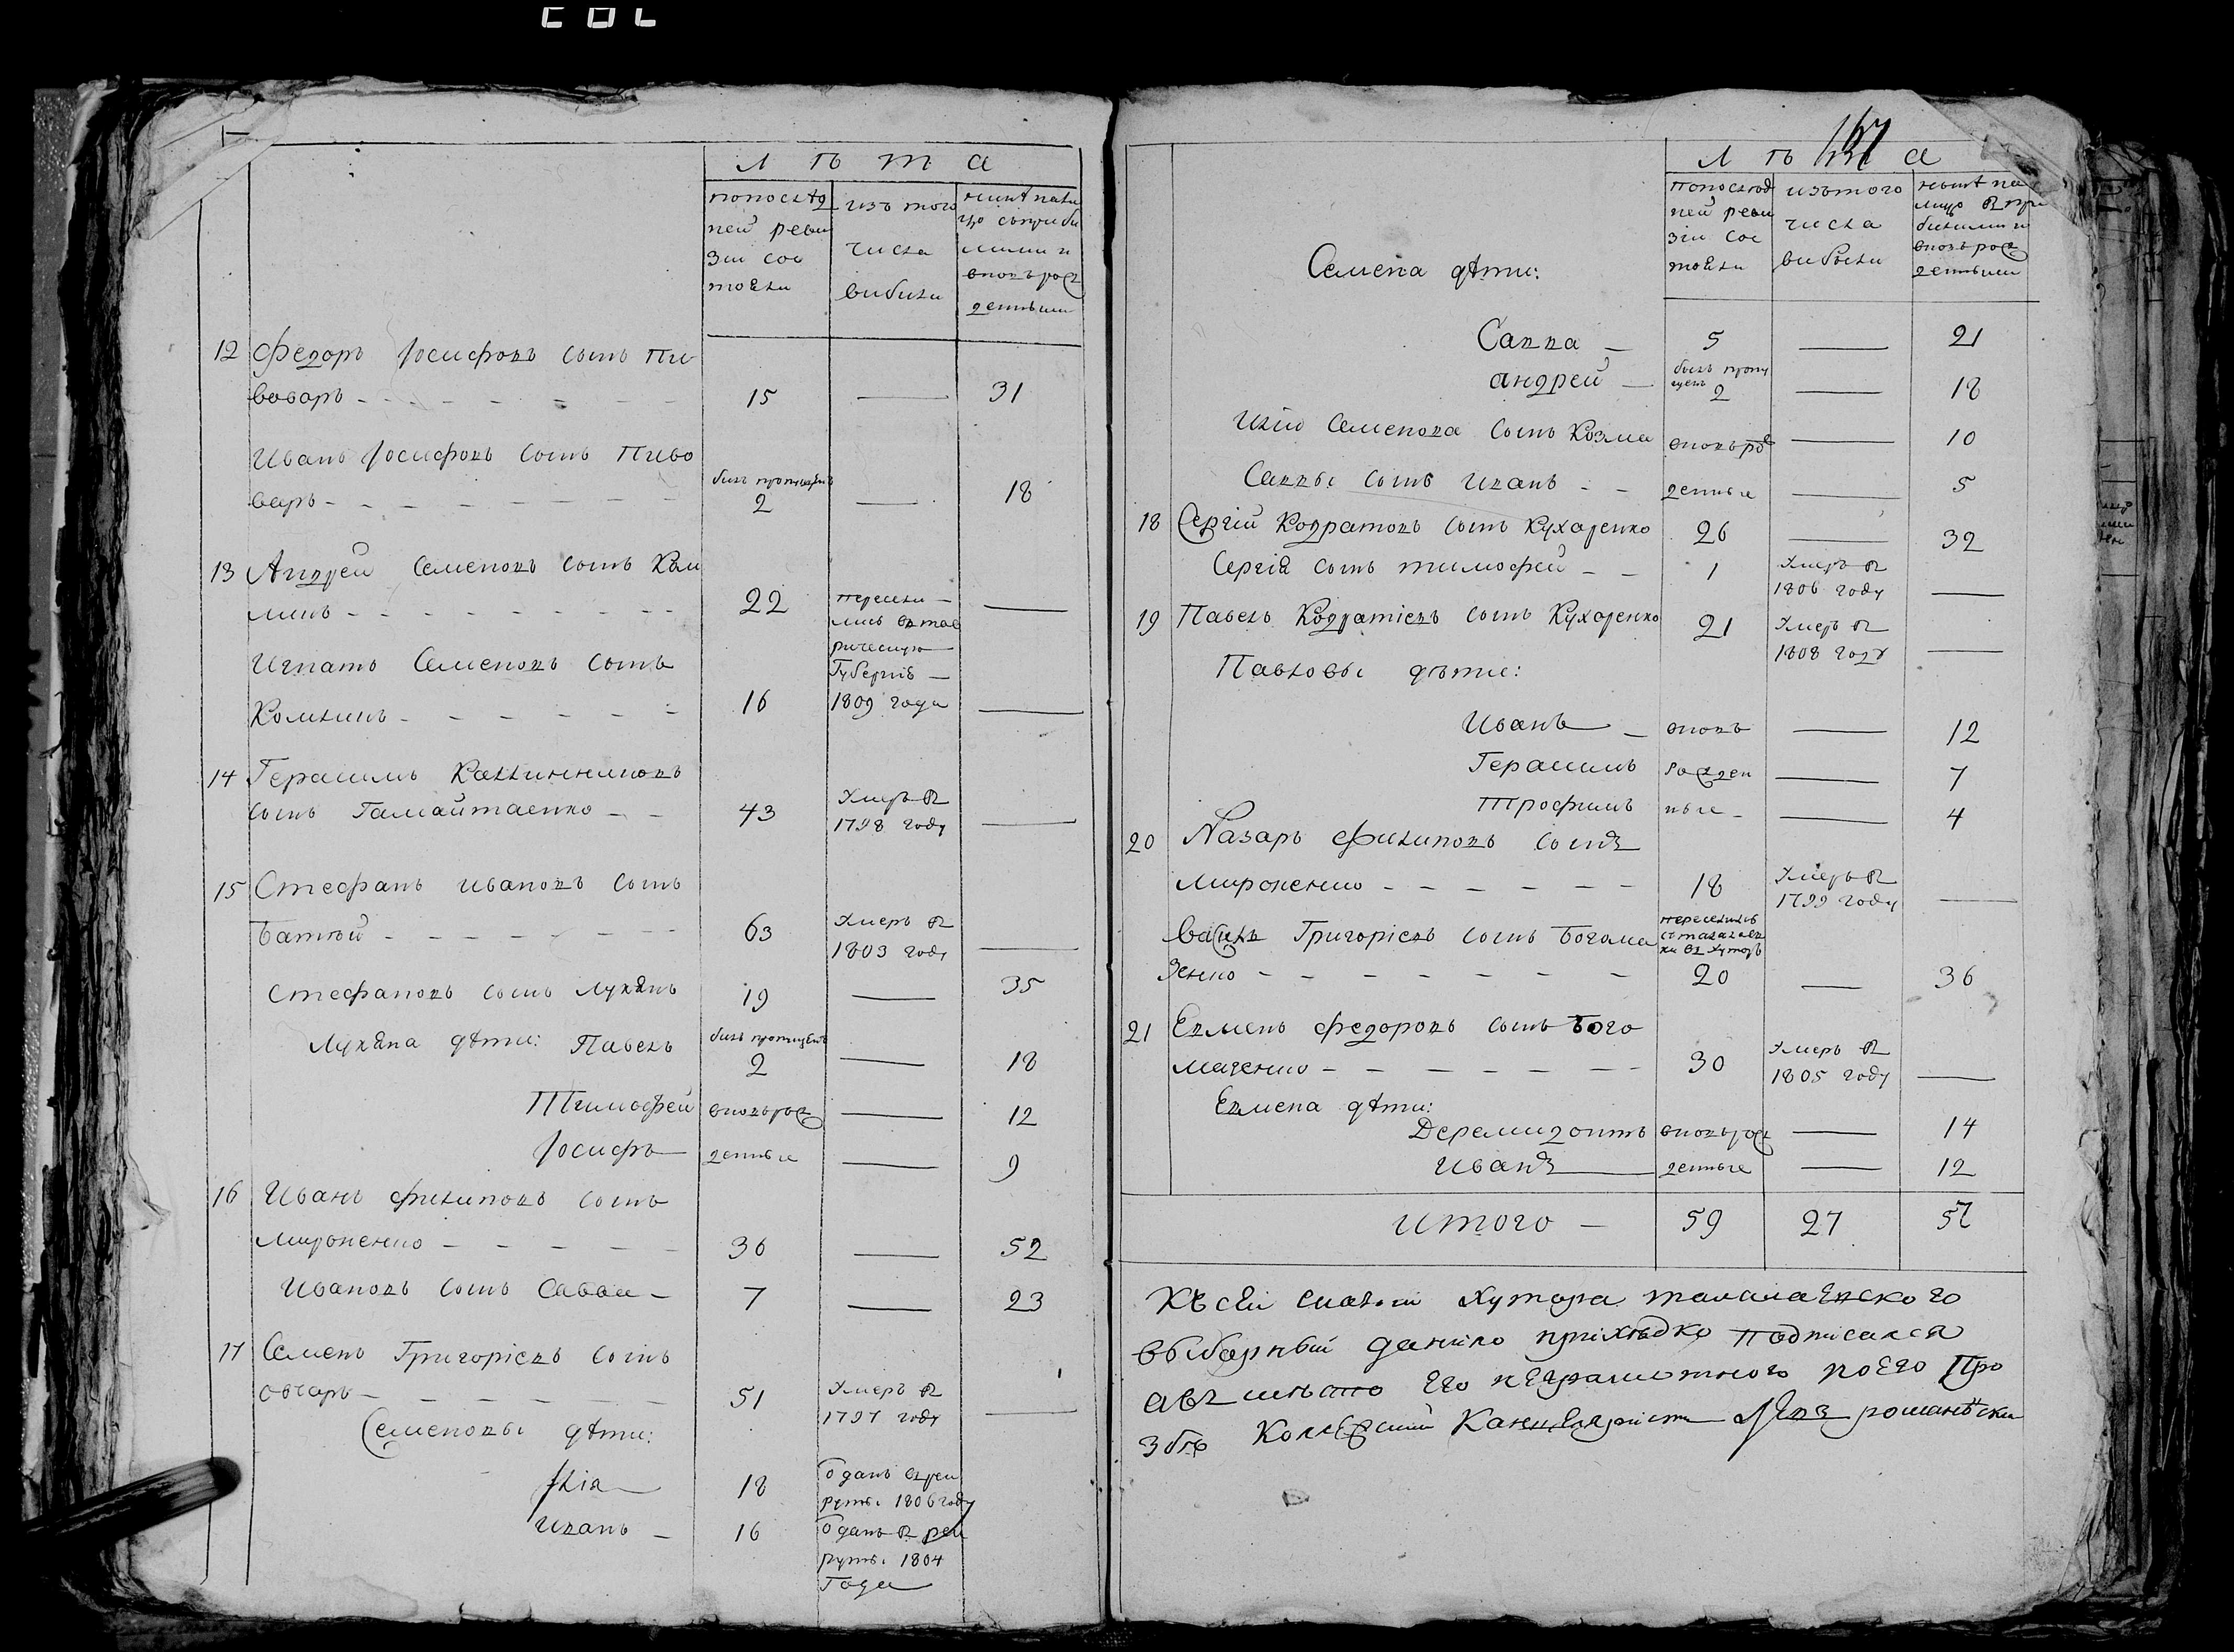 Л ѣ т а
попослѣд
ней реви
зіи сос
тояли
изъ того
числа
выбыли
нынѣ нали
цо съприбы
лыми и
вновь рож
денными
12 Федоръ Іосифовъ сынъ Пи
воваръ - - - - - - - 15 — 31
Иванъ Іосифовъ сынъ Пиво
варъ - - - - - - -
былъ пропущенъ
2 — 18
13 Андрей Семеновъ сынъ Ком
линъ - - - - - - - - 22 —
пересели
лись въ тав
рическую
Губернію
1809 года
Игнатъ Семеновъ сынъ
Комлинъ - - - - - - 16 —
14 Герасимъ Каллинниковъ
сынъ Гамайтаенко - - 43
Умеръ в
1798 году —
15 Стефанъ Ивановъ сынъ
Батий - - - - - - - 63
Умеръ в
1803 году —
Стефановъ сынъ Лукянъ 19 — 35
Лукяна дѣти: Павелъ
былъ пропущенъ
2 — 18
Тимофей вновь рож — 12
Іосифъ денные — 9
16 Иванъ Филиповъ сынъ
Мироненко - - - - - 36 — 52
Ивановъ сынъ Савва - 7 — 23
17 Семенъ Григоріевъ сынъ
Овчаръ - - - - - - 51
Умеръ в
1797 году —
Семеновы дѣти:
Илія 18
Отданъ в рек
руты 1806 году
Иванъ - 16
Отданъ в рек
руты 1804
года
157
Л ѣ т а
попослѣд
ней реви
зіи сос
тояли
изътого
числа
выбыли
нынѣ на
лицо с при
былыми и
вновь рож
денными
Семена дѣти:
Савва - 5 — 21
Андрей -
былъ пропу
щенъ
2 — 18
Иліи Семенова сынъ Козма вновь рож — 10
Саввы сынъ Иванъ - - денные — 5
18 Сергій Кодратовъ сынъ Кухаренко 26 — 32
Сергія сынъ Тимофей - - 1
Умеръ в
1806 году —
19 Павелъ Кодратіевъ сынъ Кухаренко 21
Умеръ в
1808 году —
Павловы дѣти:
Иванъ - вновь — 12
Герасимъ рожден — 7
Трофимъ ные - — 4
20 Назаръ Филиповъ сынъ
Мироненко - - - - - - 18
Умеръ в
1799 году —
Василь Григоріевъ сынъ Богома
зенко - - - - - - -
переселилсь
20 — 36
21 Евменъ Федоровъ сынъ Бого
мазенко - - - - - - - 30
Умеръ в
1805 году —
Евмена дѣти:
Деремидонтъ вновь рож — 14
Иванъ денные — 12
Итого - 59 27 57
Къ сей сказки хутора талалаевского
выборный данило приходко подписался
а въ мѣсто его неграмотного по его про
збѣ Колежский Канцеляристъ романовски